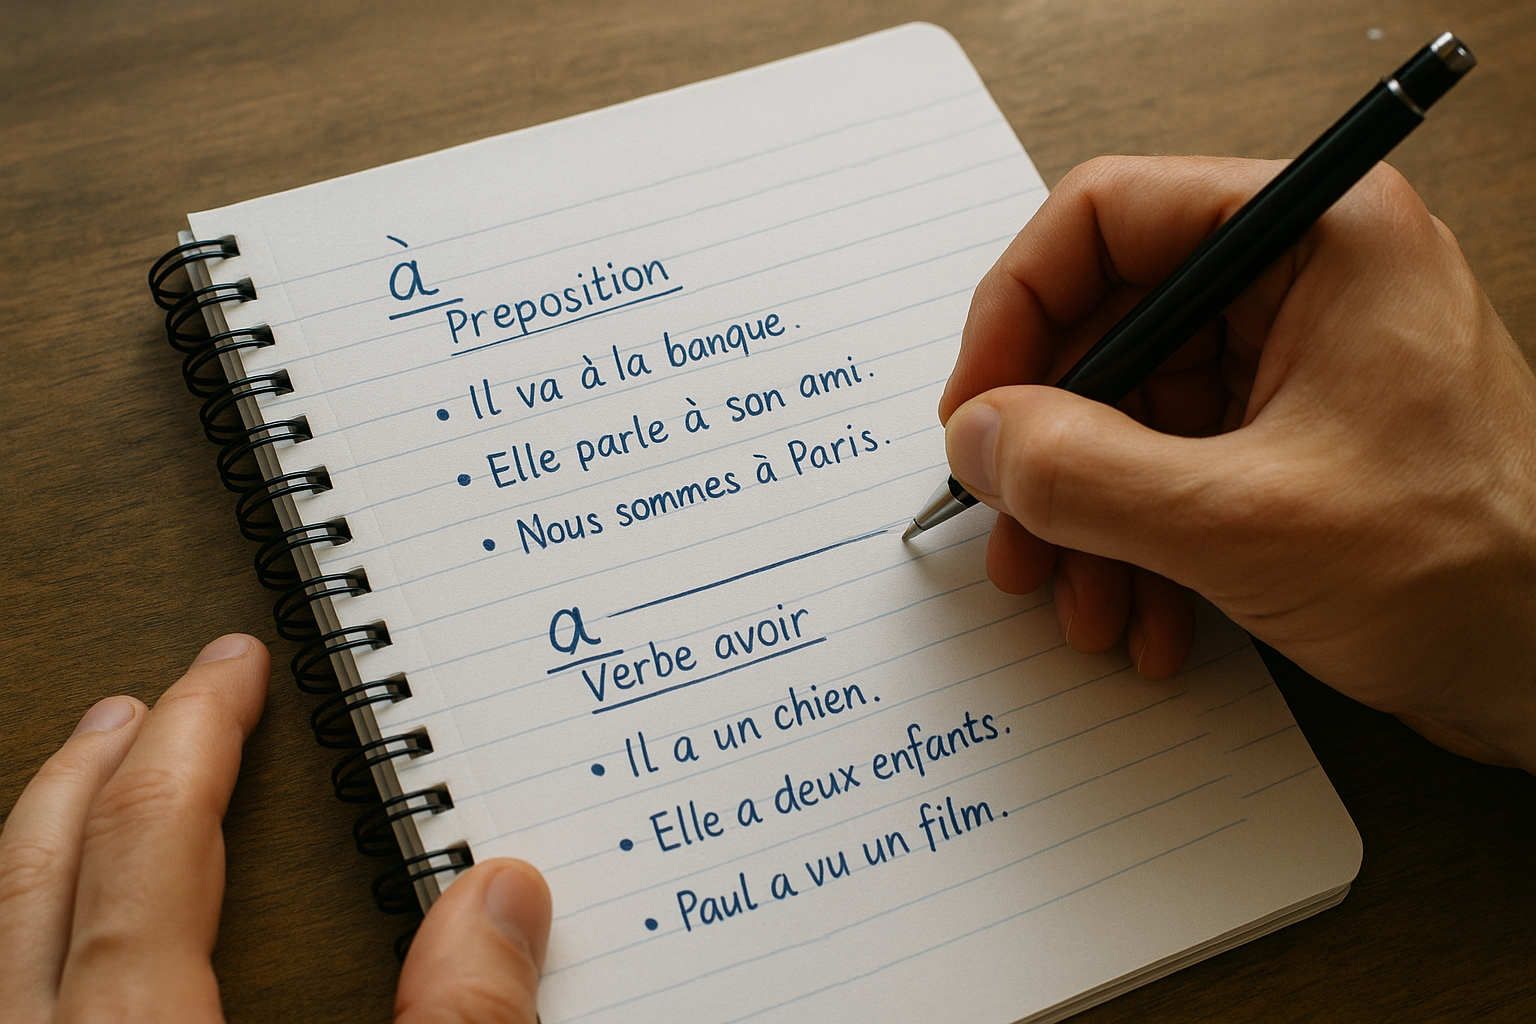 à
Preposition
• Il va à la banque.
• Elle parle à son ami.
• Nous sommes à Paris.
a
Verbe avoir
• Il a un chien.
• Elle a deux enfants.
• Paul a vu un film.